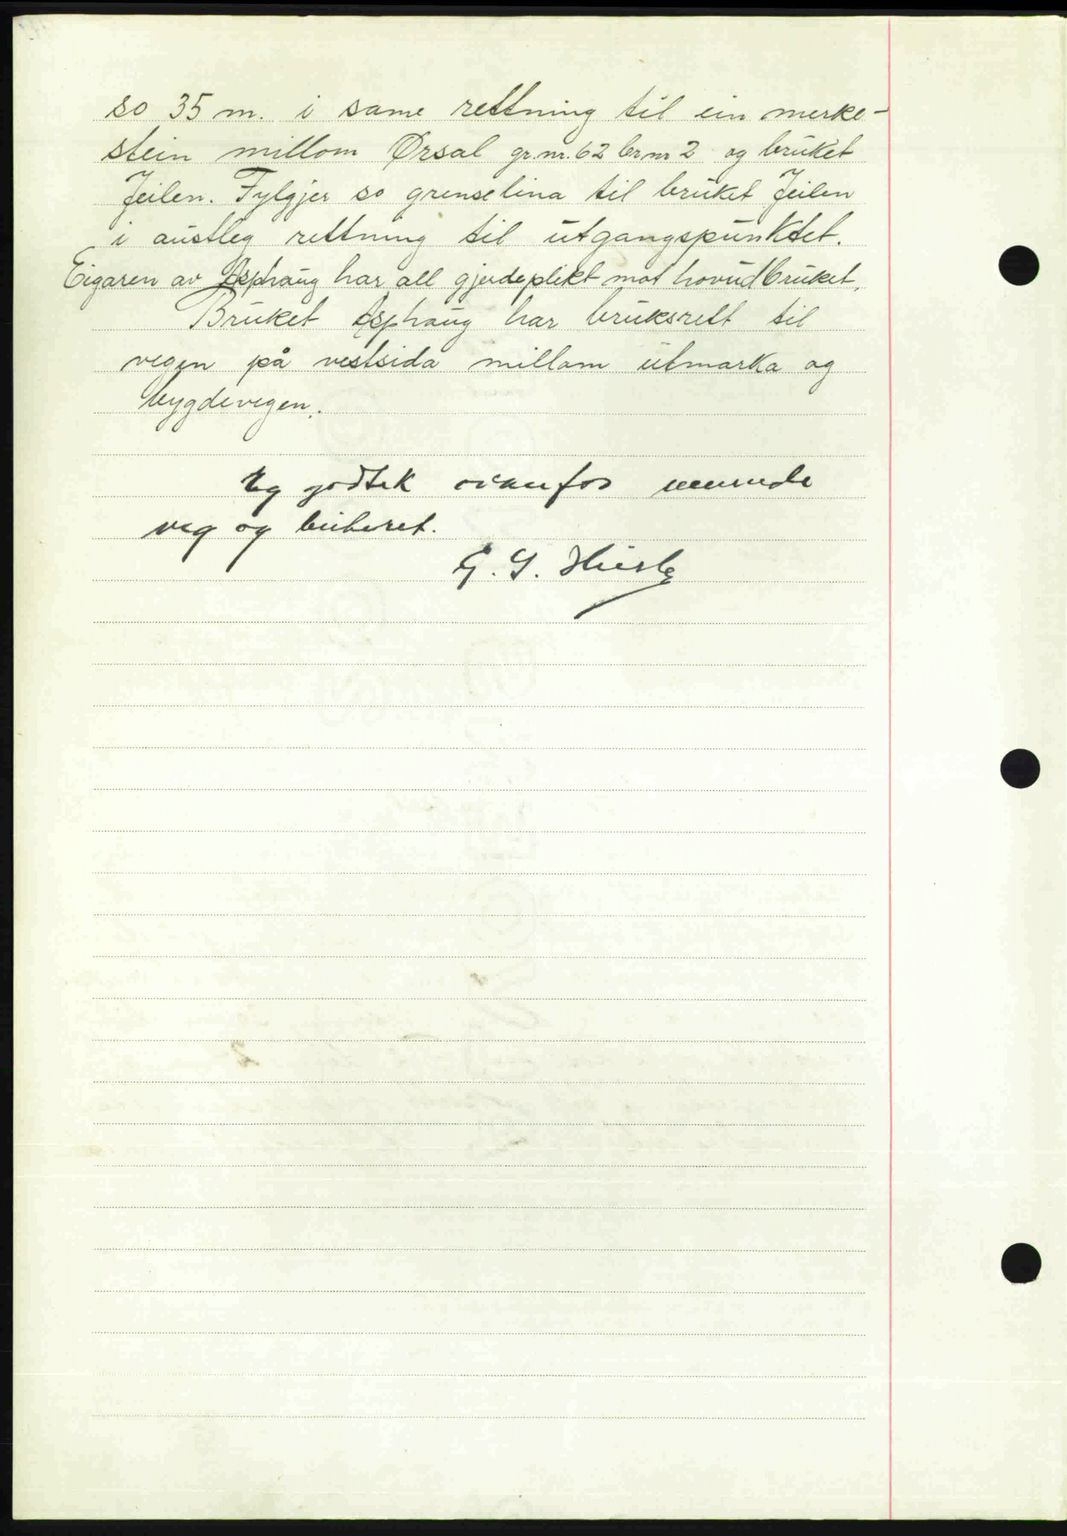 so 35 m. i same rettning til ein merke-
stein millom Ørsal gr.nr. 62 br nr 2 og bruket
Jeilen. Fylgjer so grenselina til bruket Jeilen
i austleg rettning til utgangspunktet.
Eigaren av Asphaug har all gjerdeplikt mot hovudbruket.
Bruket Asphaug har bruksrett til
vegen på vestsida millom utmarka og
bygdevegen.
Eg godtek ovanfor nemnde
veg og
G. G.